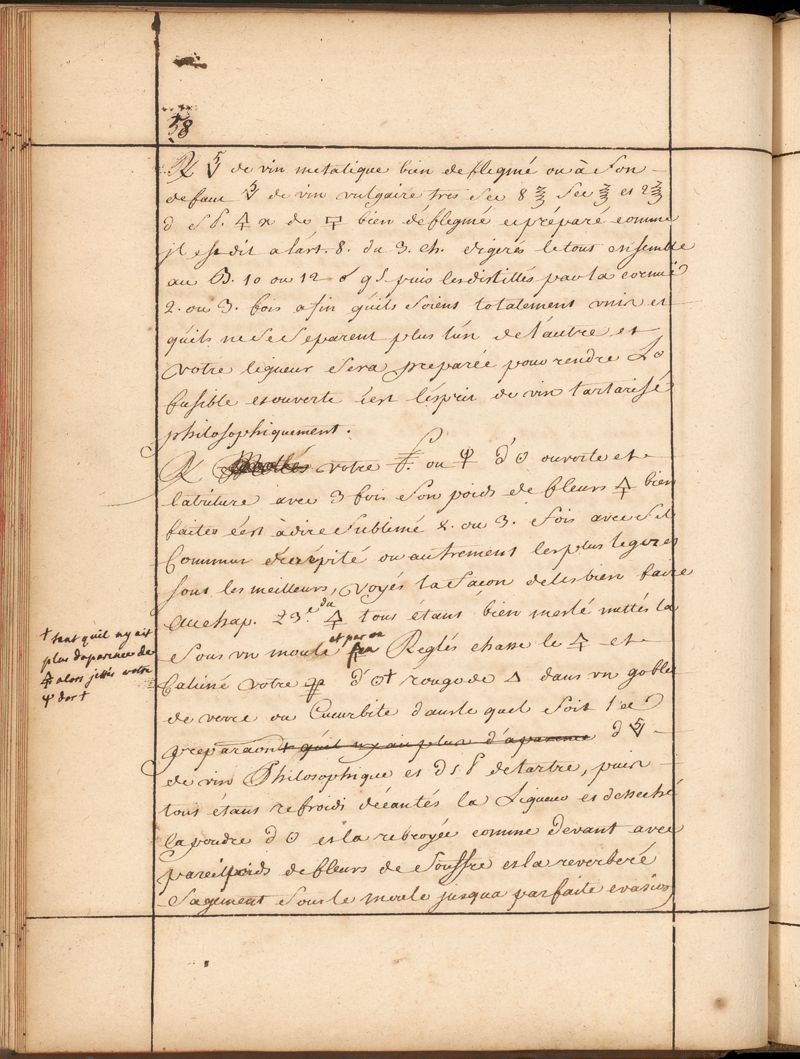 58
℞ 🜊 de vin metalique bien deflegmé ou à son
defaut de vin vulgaire tres sec 8 ℥ sec ℥ et 2 ℥
d 🜍 x de 🜃 bien déflegmé et préparé comme
jl est dit a lárt. 8. du 3. ch. digerés le tout ensemble
au B. 10 ou 12 puis les distillés par la cornuë
2. ou 3. fois afin quils soient totalement unis et
quils ne se separent plus lún de lautre et
votre liqueur sera preparée pour rendre L☉
fusible et ouverte cést lésprit de vin tartarisé
philosophiquement.
℞ votre ou 🜍 d'☉ ouverte et
latriture avec 3 fois son poids de fleurs 🜍 bien
faites cést à dire sublimé 2. ou 3. fois avec sel
Commun décrépité ou autrement les plus legeres
sont les meilleurs, voyés la facon de les bien faire
au chap. 23.e du 🜍 tous etans bien meslé mettés la
sous un moufle et par un feu Reglés chasse le 🜍 et
Calciné votre d'☉ † rouge de 🜂 dans un goblet
de verre ou Cucurbite dans le quel soit la
preparaon † quil ny ait plus d'aparence d
de vin Philosophique et d s l de tartre, puis
tous étans refroidi décantés la Liqueur et desseché
la poudre d ☉ et la rebroyée comme devant avec
pareil poids de fleurs de souffre et la reverberé
sagement sous le moufle jusqua parfaite evasion
† tant quil ny ait
plus daparence de
🜍 alors jettés votre
Ψ dor †